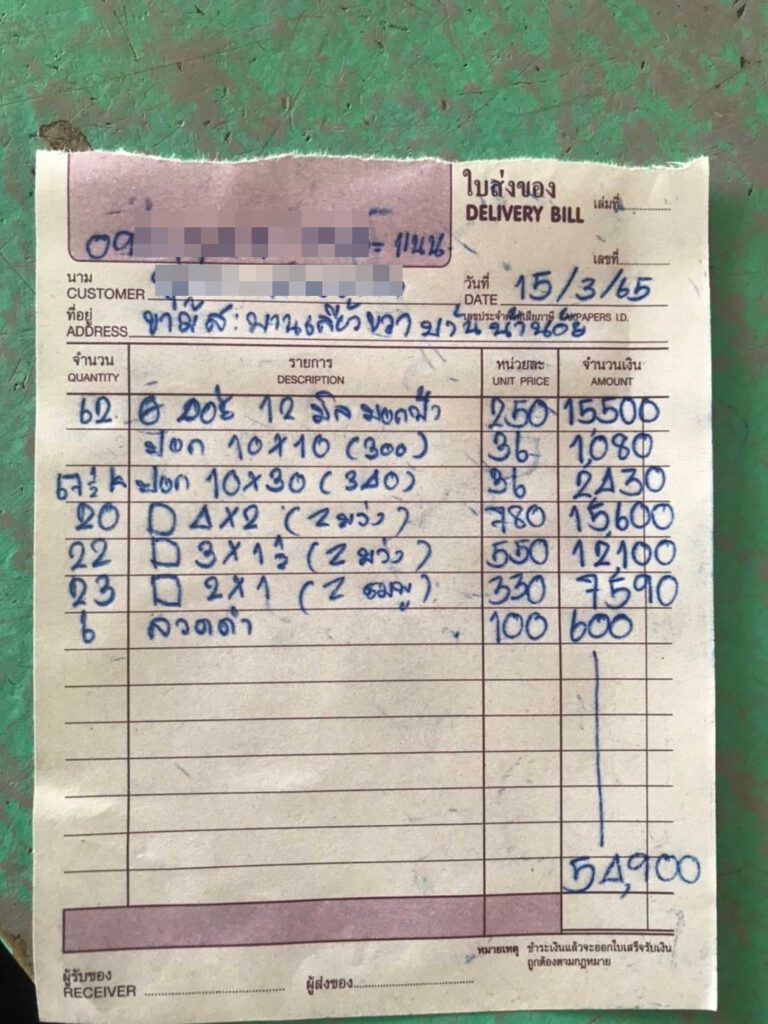 ใบส่งของ เล่มที่
DELIVERY BILL
09 แนน
เลขที่
นาม วันที่ 15/3/65
CUSTOMER DATE
ที่อยู่ เลขประจำตัวผู้เสียภาษี TAXPAPERS I.D.
ADDRESS ข้ามสะพานเลี้ยวขวา บ้านน้ำน้อย
จำนวน รายการ หน่วยละ จำนวนเงิน
QUANTITY DESCRIPTION UNIT PRICE AMOUNT
62 12 มิล 250 15500
ปอก 10×10 (300) 36 1,080
67 1/2 k ปอก 10×30 (340) 36 2,430
20 □ 4×2 (2 ม่วง) 780 15,600
22 □ 3×1 1/2 (2 ม่วง) 550 12,100
23 □ 2×1 (2 ชมพู) 330 7,590
6 ลวดดำ 100 600
54,900
หมายเหตุ ชำระเงินแล้วจะออกใบเสร็จรับเงิน
ถูกต้องตามกฎหมาย
ผู้รับของ
RECEIVER ผู้ส่งของ